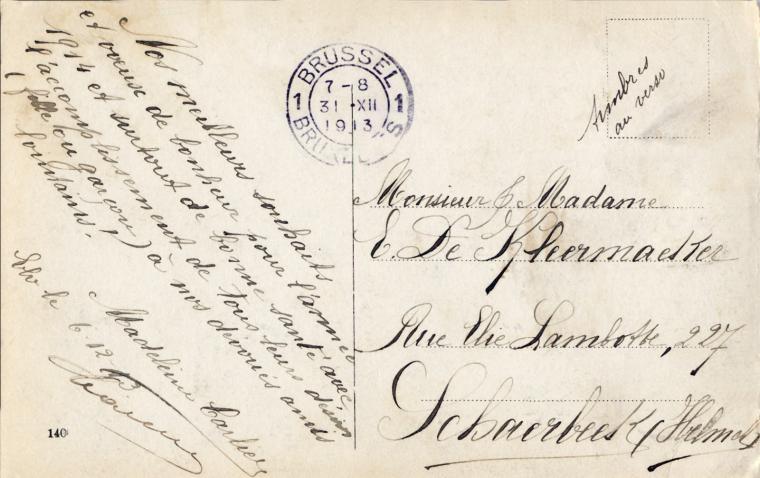 Nos meilleurs souhaits
et voeux de bonheur pour l'année
1914 et surtout de bonne santé avec
l'accomplissement de tous leurs désirs
(fille ou garçon) à nos dévoués amis
lointains!
Madeleine
le 6.12.
BRUSSEL
1 7-8 1
31 XII
1913
BRUXELLES
timbres
au verso
Monsieur & Madame
E. De Kleermaeker
Rue Elie Lambotte, 227
Schaerbeek (Helmet)
140